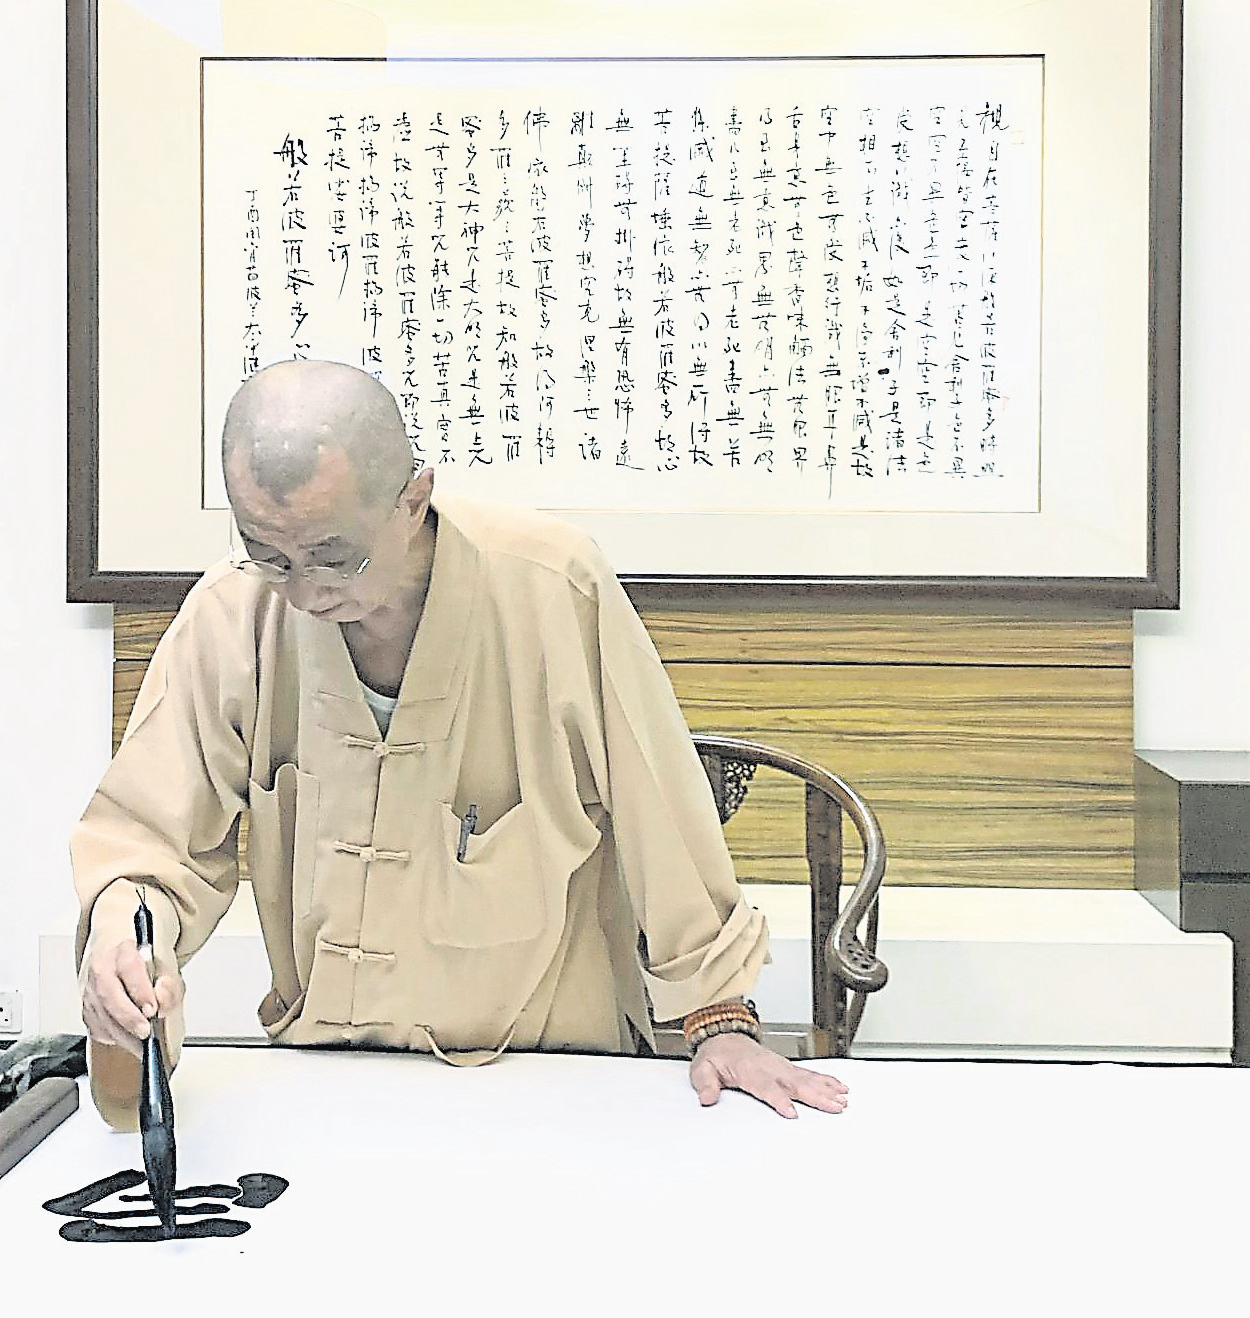 觀自在菩薩行深般若波羅蜜多時照
見五蘊皆空度一切苦厄舍利子色不異
空空不異色色即是空空即是色
受想行識亦復如是舍利子是諸法
空相不生不滅不垢不淨不增不減是故
空中無色無受想行識無眼耳鼻
舌身意無色聲香味觸法無眼界
乃至無意識界無無明亦無無明
盡乃至無老死亦無老死盡無苦
集滅道無智亦無得以無所得故
菩提薩埵依般若波羅蜜多故心
無罣礙無罣礙故無有恐怖遠
離顛倒夢想究竟涅槃三世諸
佛依般若波羅蜜多故得阿耨
多羅三藐三菩提故知般若波羅
蜜多是大神咒是大明咒是無上咒
是無等等咒能除一切苦真實不
虛故說般若波羅蜜多咒即說咒曰
揭諦揭諦波羅揭諦波
菩提娑婆訶
般若波羅蜜多心
丁酉